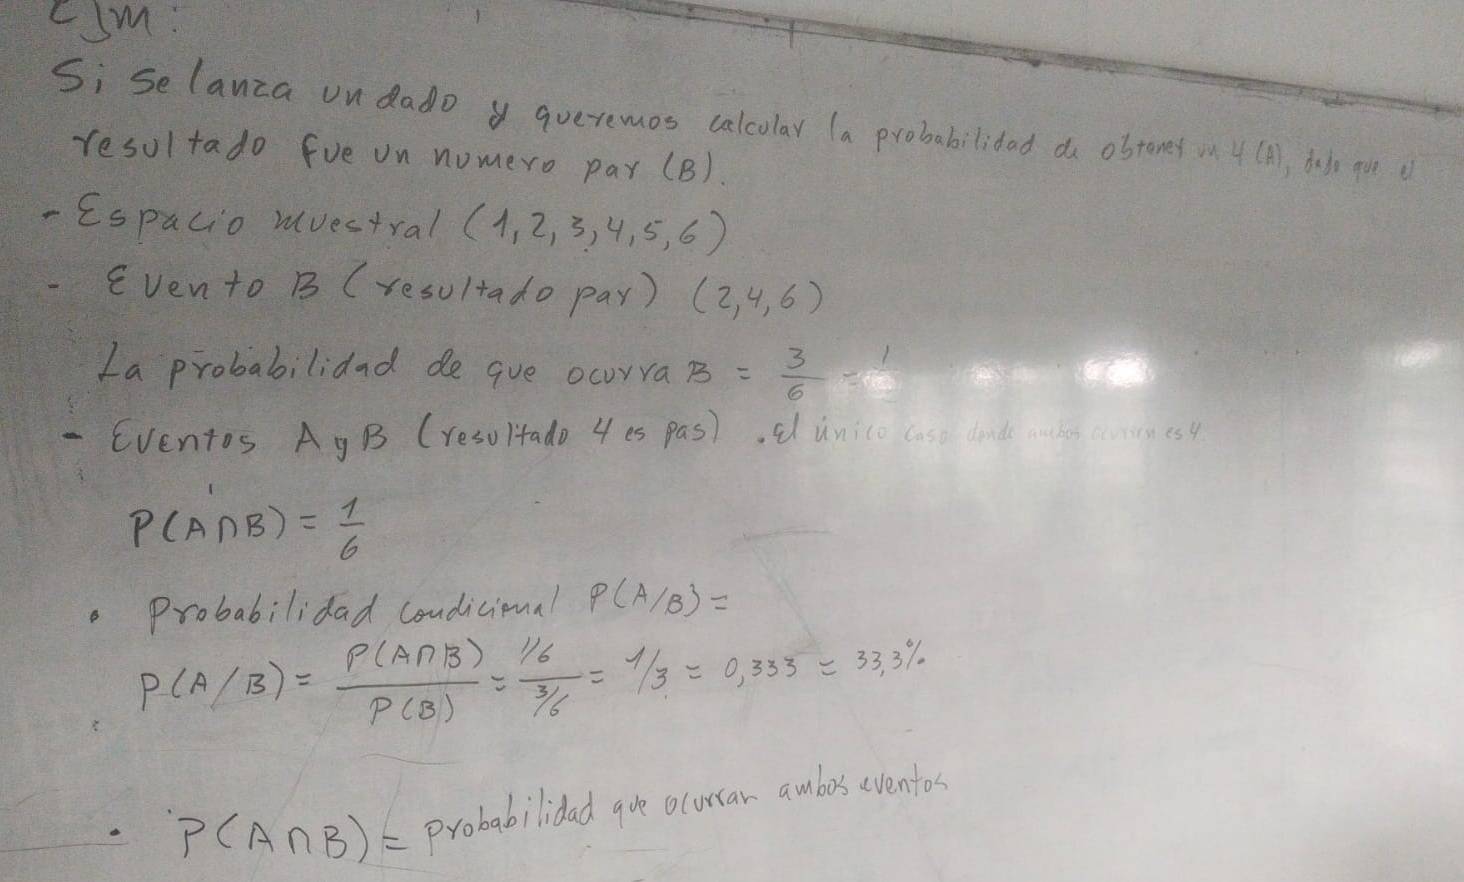 Ejm:
Si se lanza un dado y queremos calcular la probabilidad de obtener un 4 (A), dado que el
resultado fue un numero par (B).
- Espacio muestral (1,2,3,4,5,6)
- Evento B (resultado par) (2,4,6)
La probabilidad de que ocurra B = 3/6 = 1
- Eventos A y B (resultado 4 es pas). El único caso donde ambos ocurren es 4.
P(A∩B) = 1/6
• Probabilidad condicional P(A/B) =
P(A/B) = P(A∩B)/P(B) = 1/6 / 3/6 = 1/3 = 0,333 = 33,3%
• P(A∩B) = probabilidad que ocurran ambos eventos